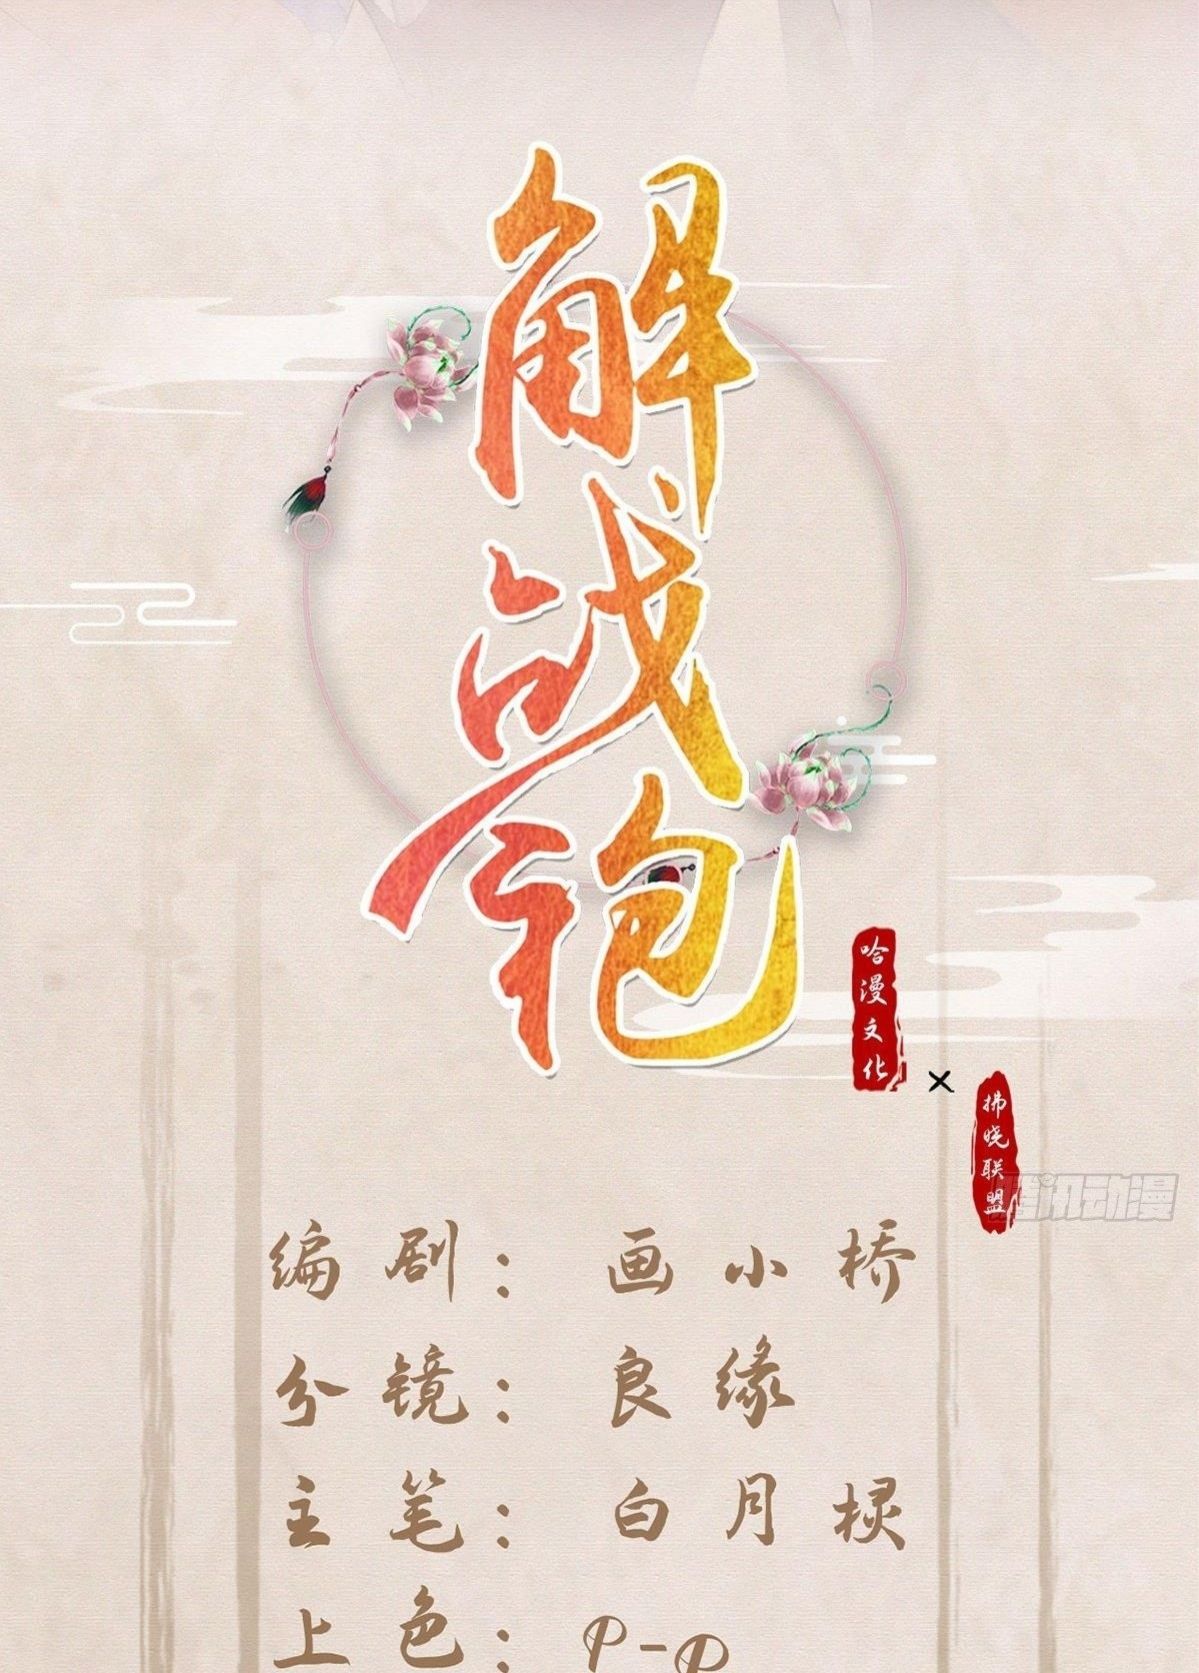 解战袍
哈漫文化
×
拂晓联盟
腾讯动漫
编剧：画小桥
分镜：良缘
主笔：白月棂
上色：P-P